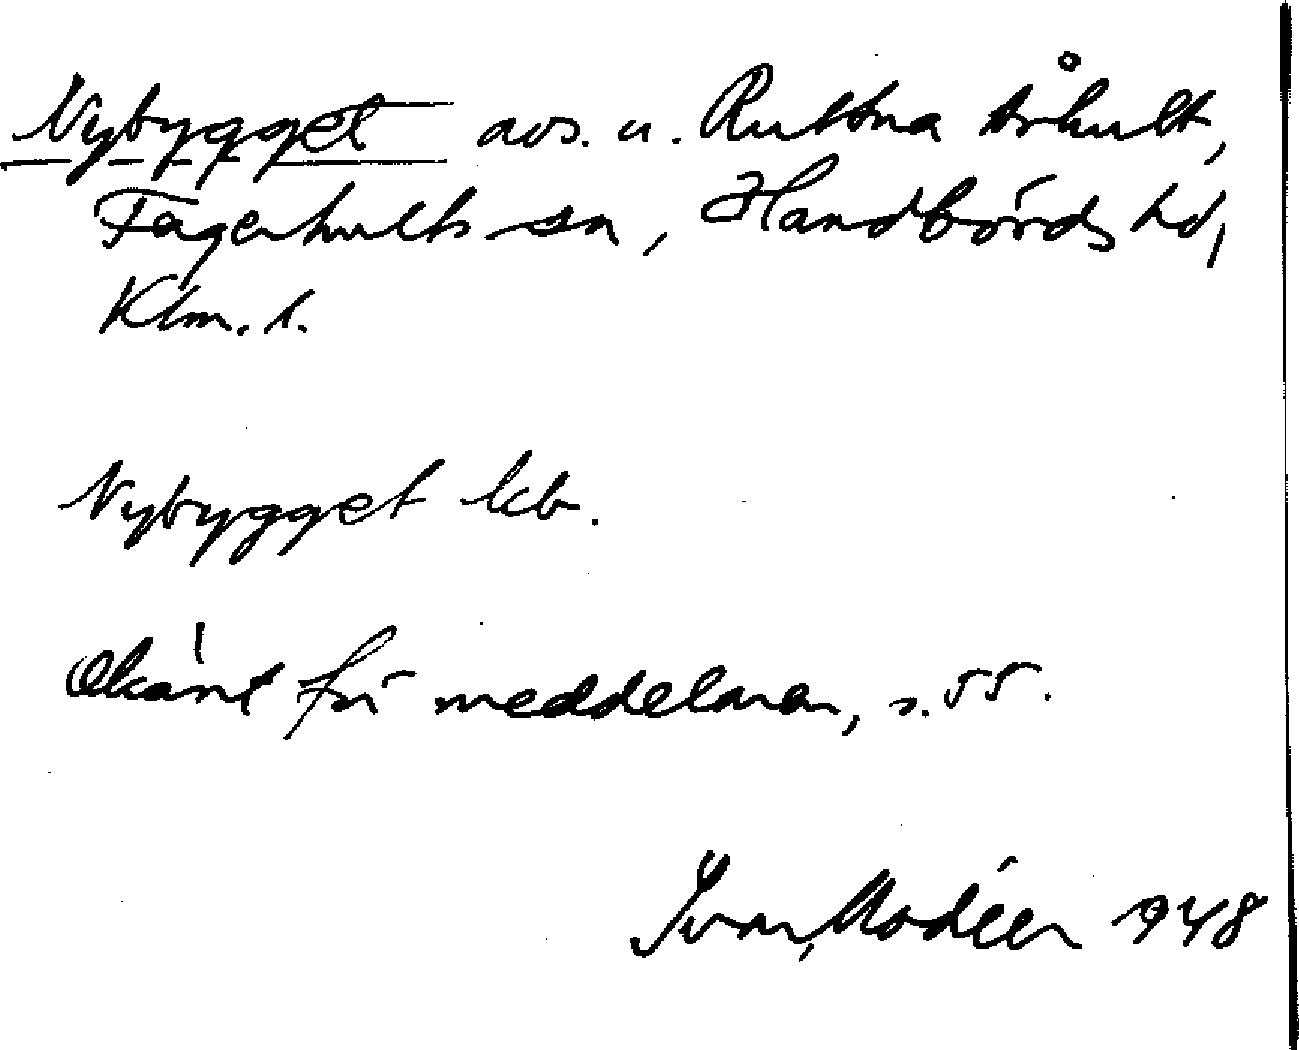 Nybygget avs. u. Ruttna Århult,
Fagerhults sn, Handbörds hd,
Klm. l.
Nybygget kb.
Okänt för meddelaren, s. 55.
Ivar Modéer 1948